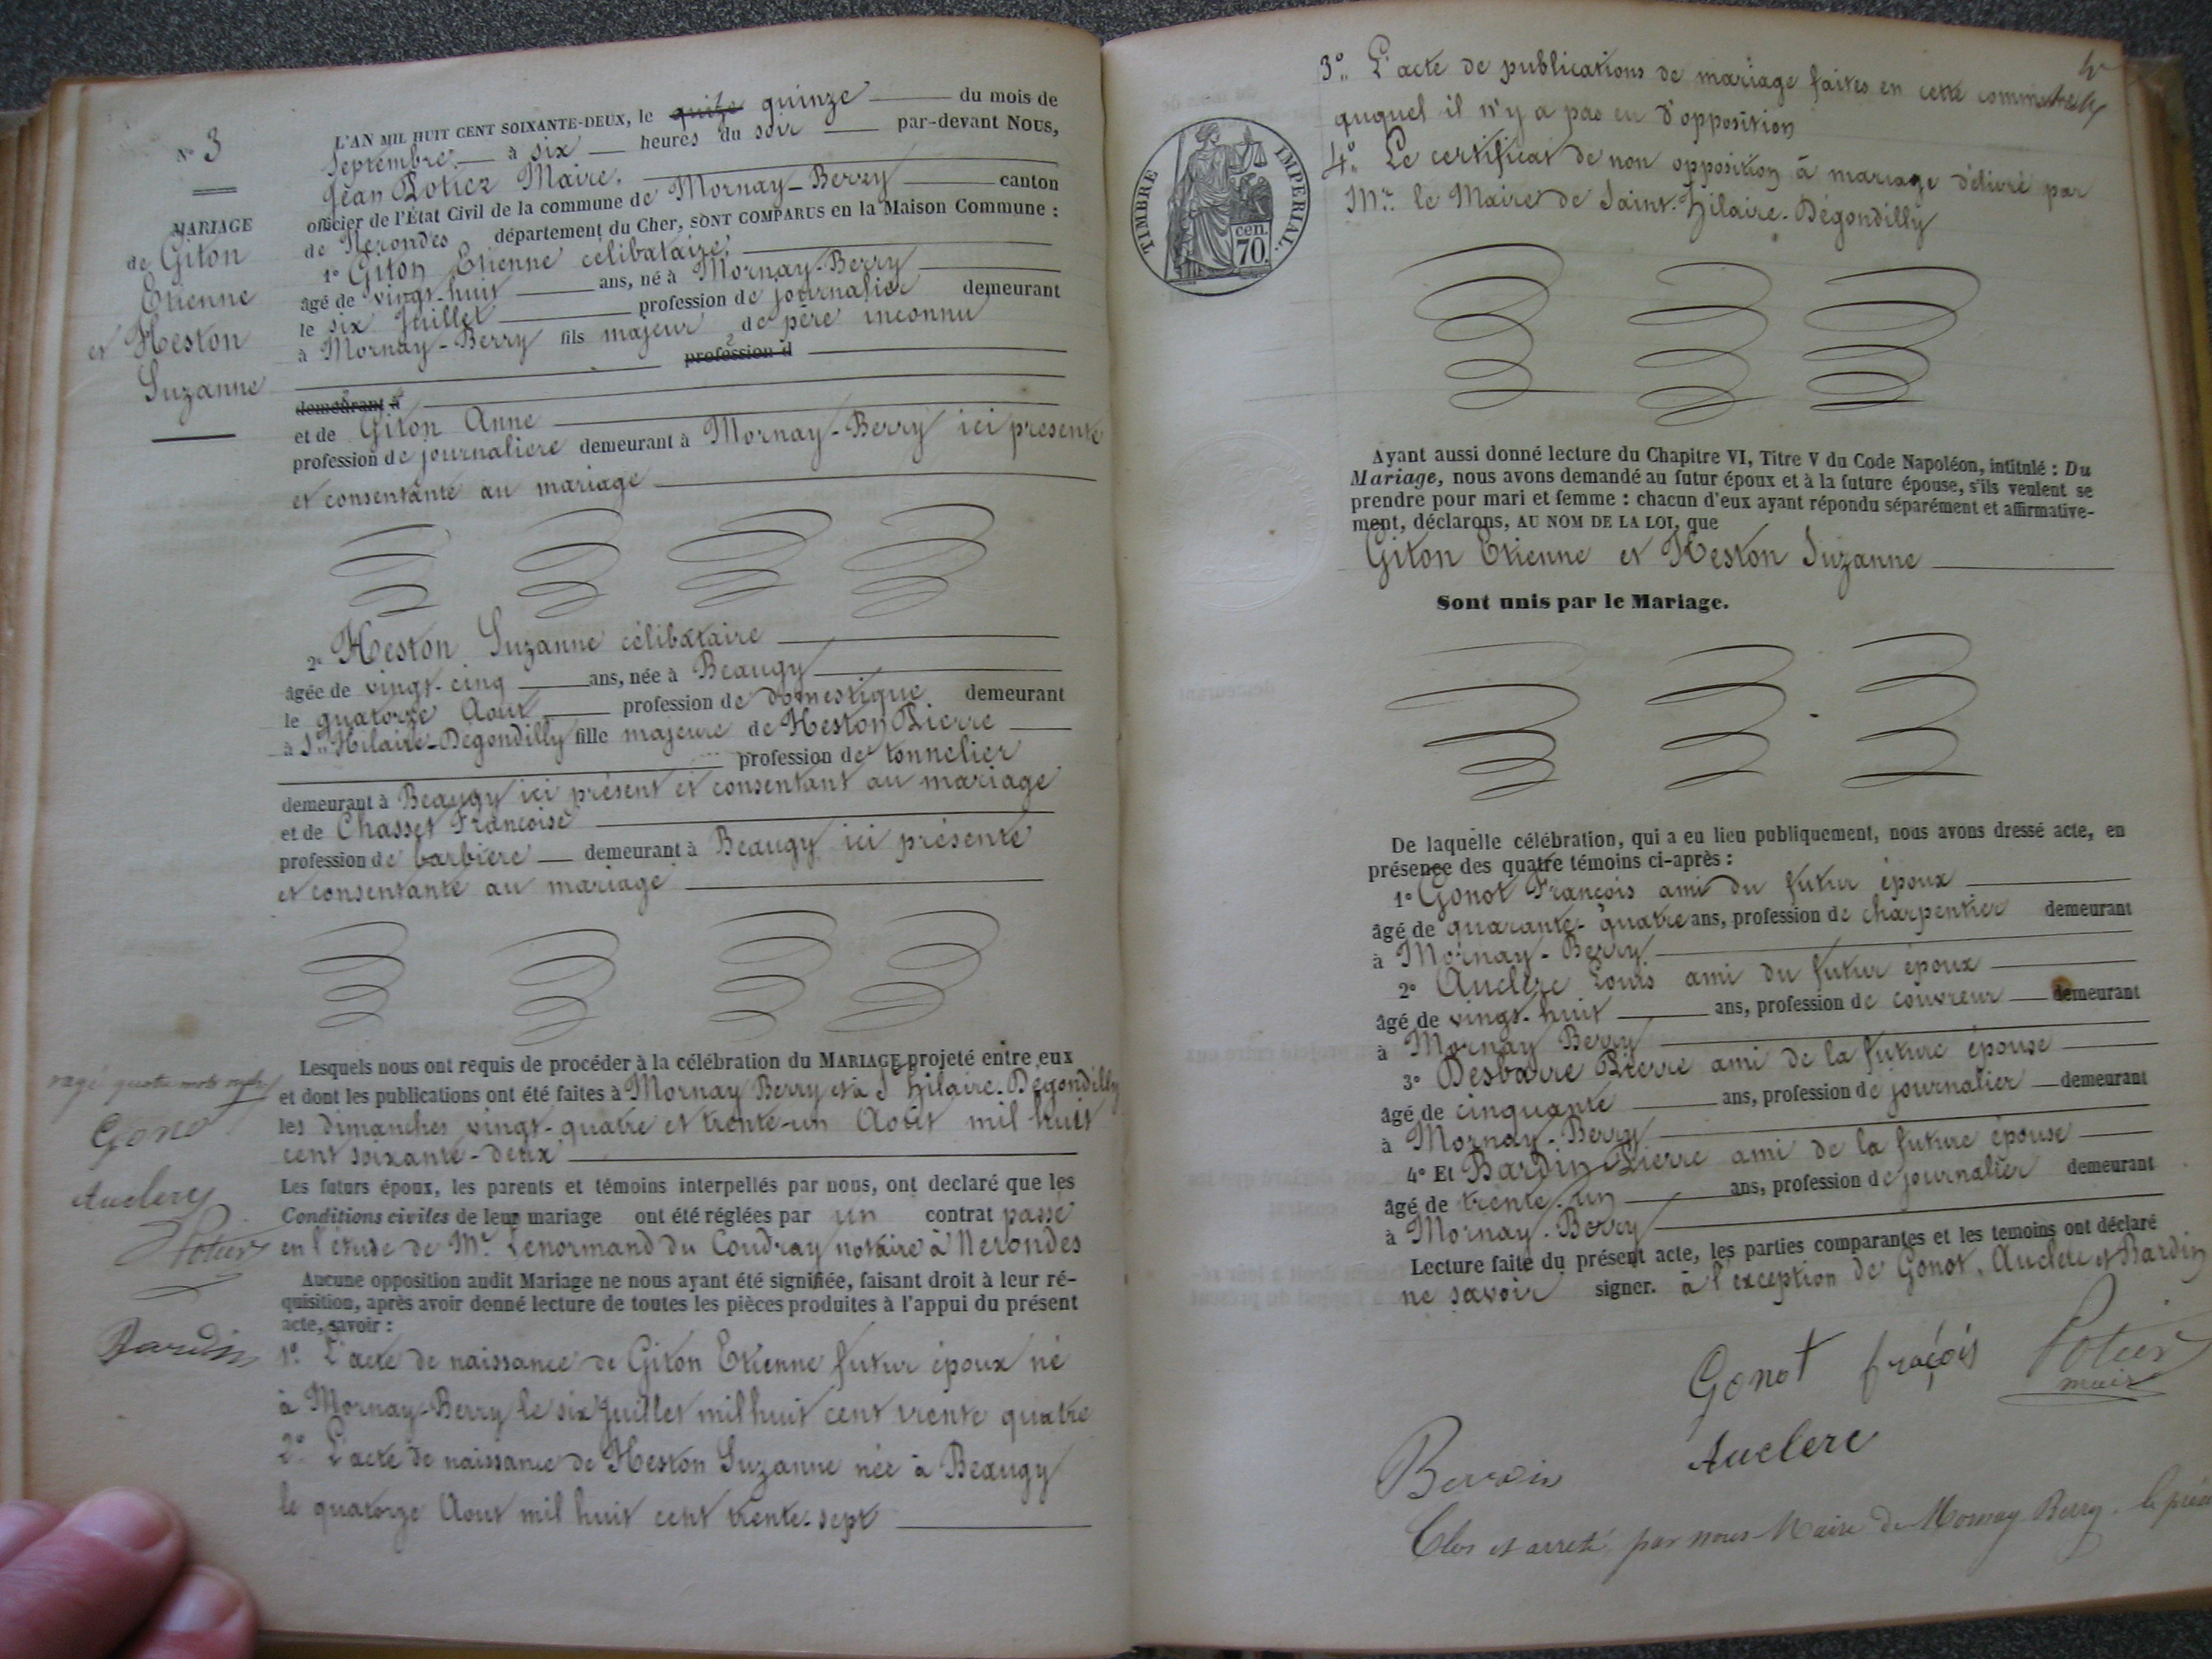 N° 3
MARIAGE
de Giton
Etienne
et Heston
Suzanne
L'AN MIL HUIT CENT SOIXANTE-DEUX, le quize quinze du mois de
Septembre à six heures du soir par-devant NOUS,
Jean Potier Maire.
officier de l'État Civil de la commune de Mornay-Berry canton
de Nerondes département du Cher, SONT COMPARUS en la Maison Commune :
1° Giton Etienne célibataire,
âgé de vingt-huit ans, né à Mornay-Berry
le six Juillet profession de journalier demeurant
à Mornay-Berry fils majeur de père inconnu
profession d
demeurant à
et de Giton Anne
profession de journaliere demeurant à Mornay-Berry ici présente
et consentante au mariage
2° Heston Suzanne célibataire
âgée de vingt-cinq ans, née à Beaugy
le quatorze Aout profession de domestique demeurant
à St Hilaire-Degondilly fille majeure de Heston Pierre
profession de tonnelier
demeurant à Beaugy ici présent et consentant au mariage
et de Chasset Françoise
profession de barbière demeurant à Beaugy ici présente
et consentante au mariage
Lesquels nous ont requis de procéder à la célébration du MARIAGE projeté entre eux
et dont les publications ont été faites à Mornay Berry et à St hilaire-Degondilly
les dimanches vingt-quatre et trente-un Août mil huit
cent soixante-deux
Les futurs époux, les parents et témoins interpellés par nous, ont declaré que les
Conditions civiles de leur mariage ont été réglées par un contrat passé
en l'etude de Me Lenormand du Coudray notaire à Nerondes
Aucune opposition audit Mariage ne nous ayant été signifiée, faisant droit à leur ré-
quisition, après avoir donné lecture de toutes les pièces produites à l'appui du présent
acte, savoir :
1° L'acte de naissance de Giton Etienne futur époux né
à Mornay-Berry le six Juillet mil huit cent trente quatre
2° L'acte de naissance de Heston Suzanne née à Beaugy
le quatorze Aout mil huit cent trente-sept
mots
Gono
Auclere
Potier
Bardin
3° L'acte de publications de mariage faites en cette commune
auquel il n'y a pas eu d'opposition
4° Le certificat de non opposition à mariage délivré par
Mr le Maire de Saint-hilaire-Dégondilly
TIMBRE IMPÉRIAL.
70 cen.
Ayant aussi donné lecture du Chapitre VI, Titre V du Code Napoléon, intitulé : Du
Mariage, nous avons demandé au futur époux et à la future épouse, s'ils veulent se
prendre pour mari et femme : chacun d'eux ayant répondu séparément et affirmative-
ment, déclarons, AU NOM DE LA LOI, que
Giton Etienne et Heston Suzanne
Sont unis par le Mariage.
De laquelle célébration, qui a eu lieu publiquement, nous avons dressé acte, en
présence des quatre témoins ci-après :
1° Gonot François ami du futur époux
âgé de quarante-quatre ans, profession de charpentier demeurant
à Mornay-Berry
2° Auclere Louis ami du futur époux
âgé de vingt-huit ans, profession de couvreur demeurant
à Mornay Berry
3° Desbarre Pierre ami de la future épouse
âgé de cinquante ans, profession de journalier demeurant
à Mornay-Berry
4° Et Bardin Pierre ami de la future épouse
âgé de trente-un ans, profession de journalier demeurant
à Mornay-Berry
Lecture faite du présent acte, les parties comparantes et les temoins ont déclaré
ne savoir signer. à l'exception de Gonot, Auclere et Bardin
Gonot fraçois
Potier
maire
Auclere
Clos et arreté par nous Maire de Mornay Berry. le